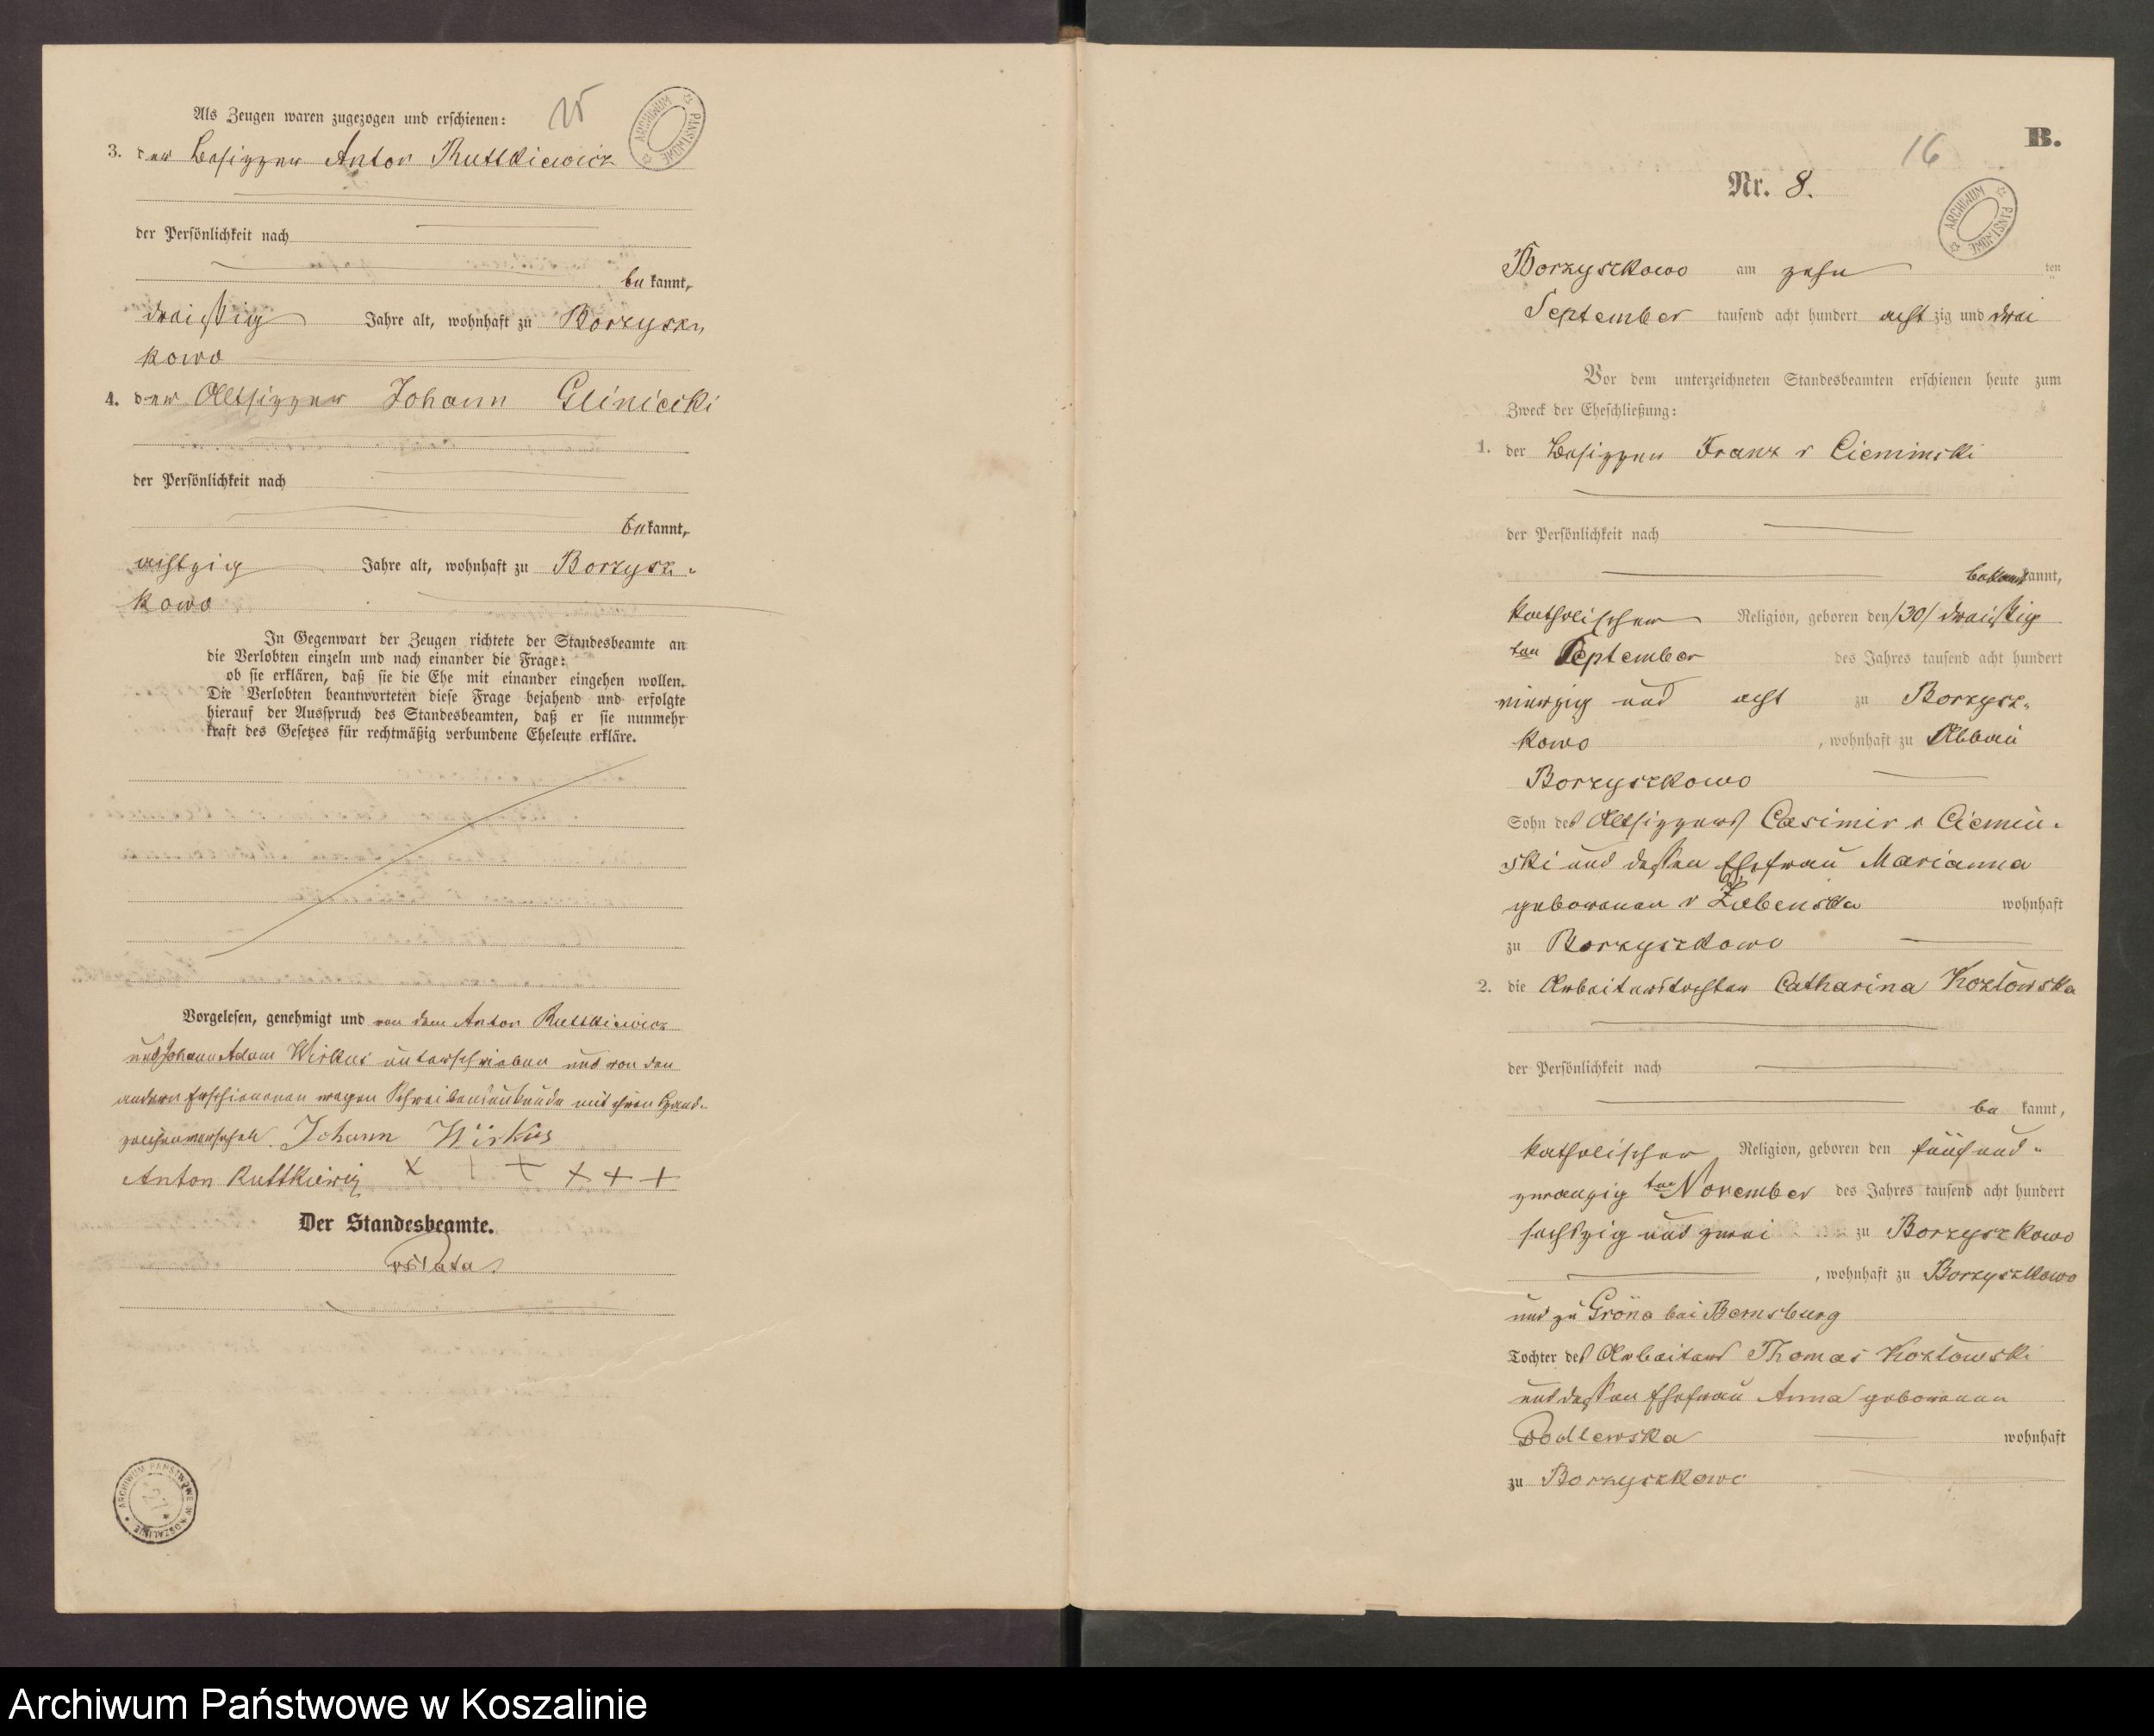 15
Als Zeugen waren zugezogen und erschienen:
3. der Besitzer Anton Ruttkiewicz
der Persönlichkeit nach
be kannt,
dreißig Jahre alt, wohnhaft zu Borzysz-
kowo
4. der Altsitzer Johann Gliniecki
der Persönlichkeit nach
be kannt,
achtzig Jahre alt, wohnhaft zu Borzysz-
kowo
In Gegenwart der Zeugen richtete der Standesbeamte an
die Verlobten einzeln und nach einander die Frage:
ob sie erklären, daß sie die Ehe mit einander eingehen wollen.
Die Verlobten beantworteten diese Frage bejahend und erfolgte
hierauf der Ausspruch des Standesbeamten, daß er sie nunmehr
kraft des Gesetzes für rechtmäßig verbundene Eheleute erkläre.
Vorgelesen, genehmigt und von dem Anton Ruttkiewicz
und Johann Adam Wirkus unterschrieben und von den
andern Erschienenen wegen Schreibensunkunde mit ihren Hand-
zeichen versehen. Johann Wirkus
Anton Ruttkiewicz x + + x + +
Der Standesbeamte.
ARCHIWUM PAŃSTWOWE W KOSZALINIE
ARCHIWUM PAŃSTWOWE
B.
16
Nr. 8.
ARCHIWUM PAŃSTWOWE
Borzyszkowo am zehn ten
September tausend acht hundert acht zig und drei
Vor dem unterzeichneten Standesbeamten erschienen heute zum
Zweck der Eheschließung:
1. der Besitzer Franz v Cieminski
der Persönlichkeit nach
bekannt kannt,
katholischer Religion, geboren den /30/ dreißig
ten September des Jahres tausend acht hundert
vierzig und acht zu Borzysz-
kowo , wohnhaft zu Abbau
Borzyszkowo
Sohn des Altsitzers Casimir v Ciemin-
ski und dessen Ehefrau Marianna
geborenen v wohnhaft
zu Borzyszkowo
2. die Arbeiterstochter Catharina Kozlowska
der Persönlichkeit nach
be kannt,
katholischer Religion, geboren den fünf und-
zwanzig ten November des Jahres tausend acht hundert
sechszig und zwei zu Borzyszkowo
, wohnhaft zu Borzyszkowo
und zu Gröna bei Bernsburg
Tochter des Arbeiters Thomas Kozlowski
und dessen Ehefrau Anna geborenen
Podlewska wohnhaft
zu Borzyszkowo
Archiwum Państwowe w Koszalinie